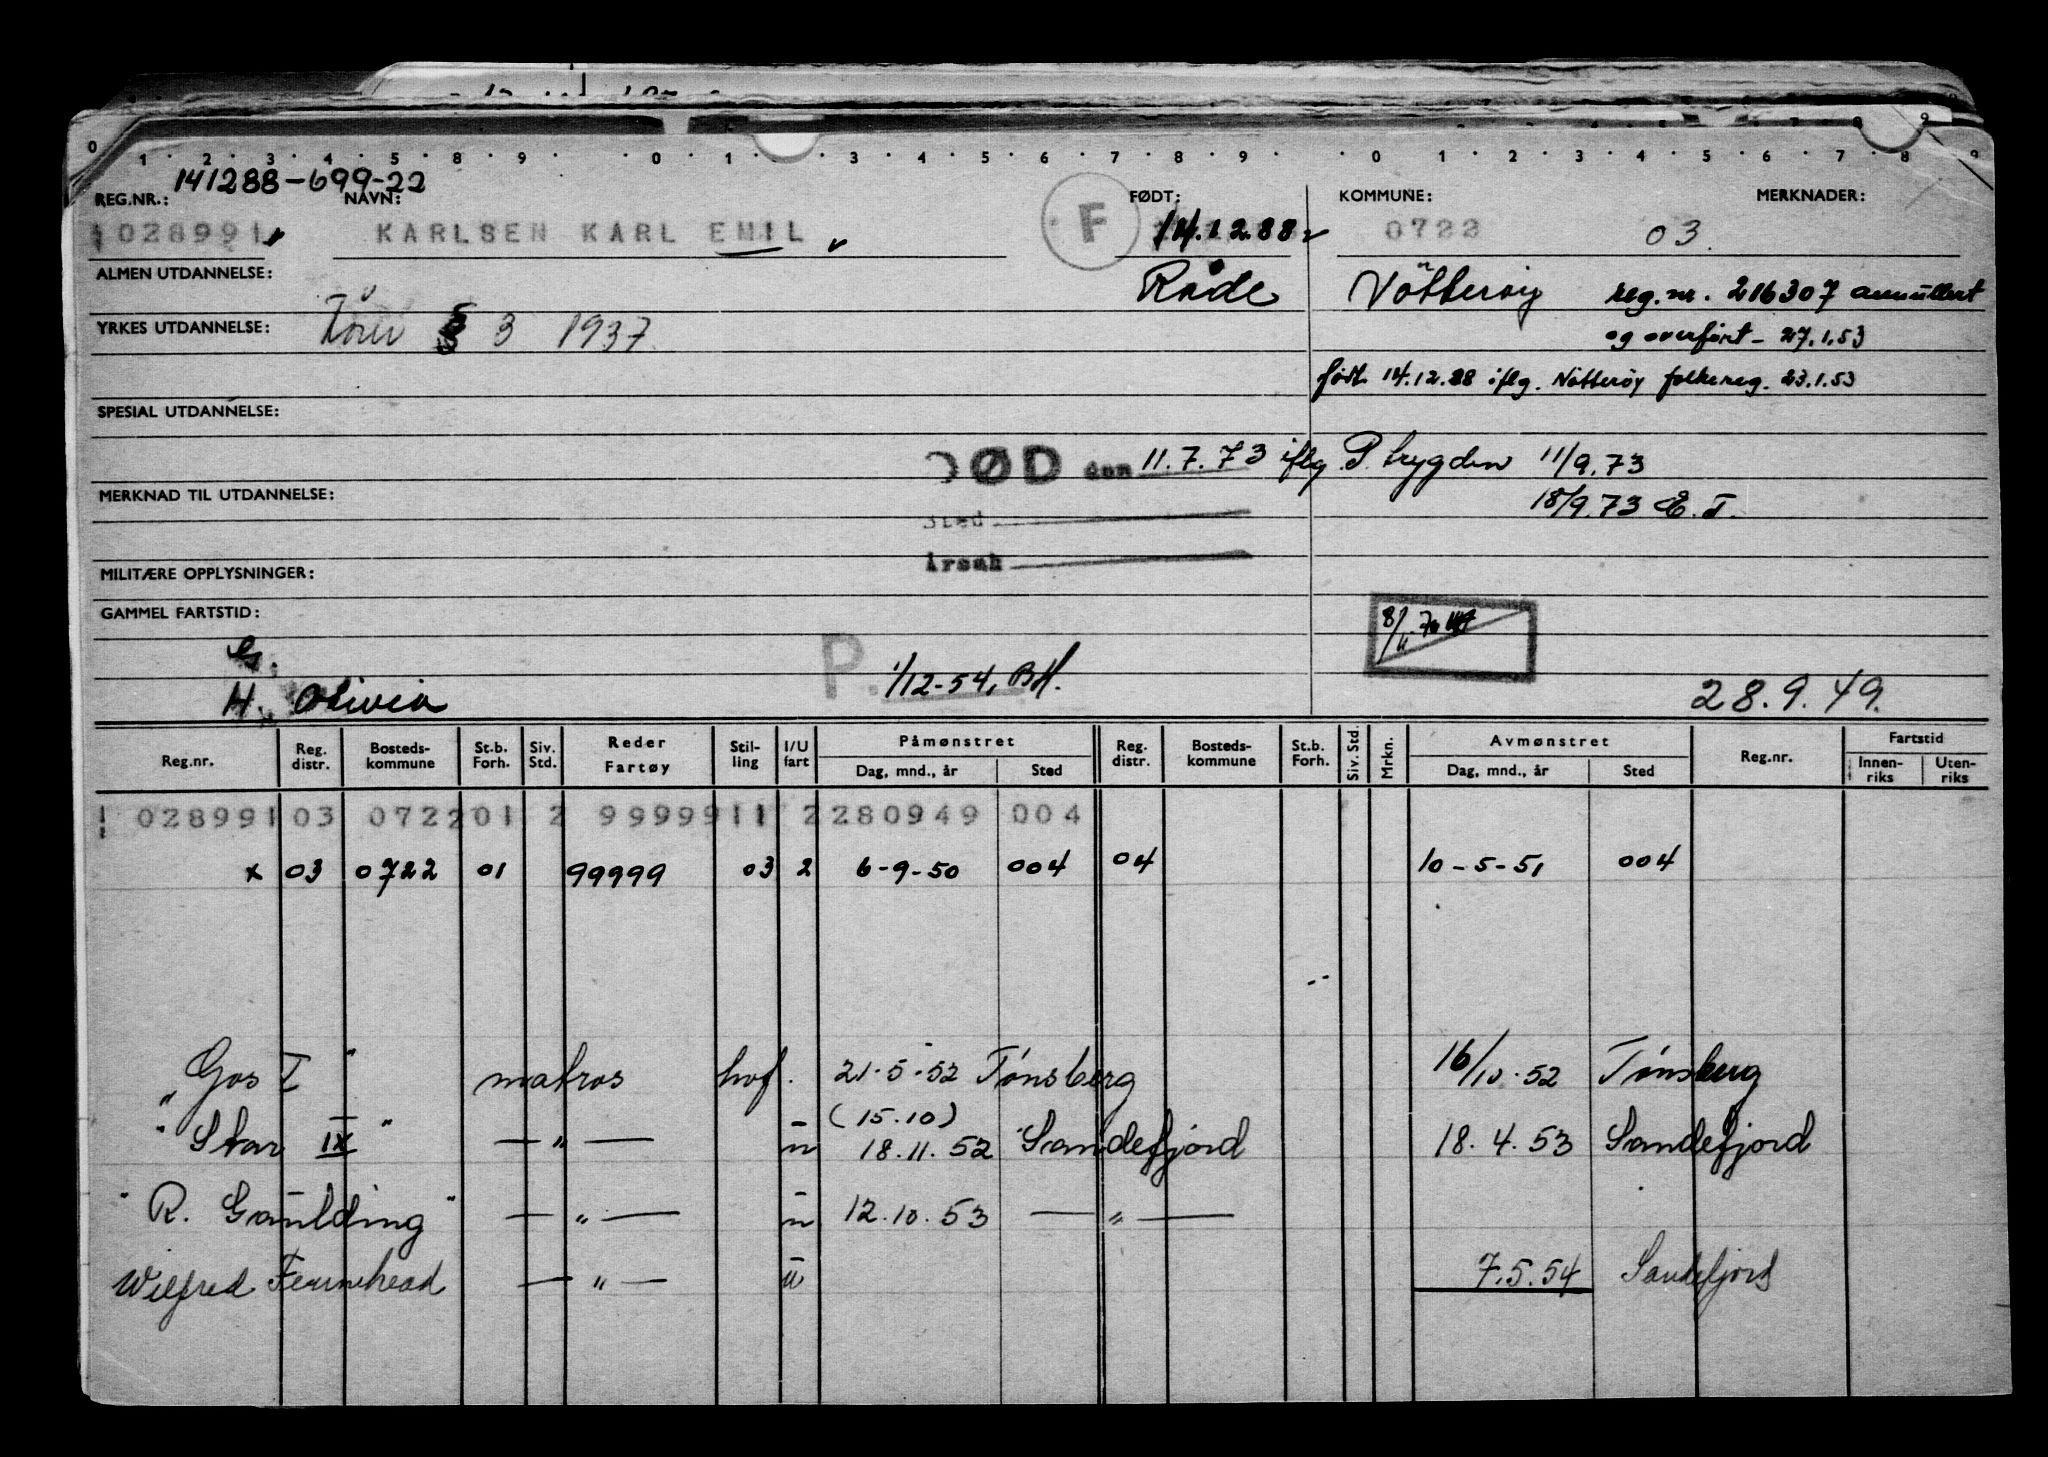 0 1 2 3 4 5 8 9 0 1 3 4 5 6 7 8 9 0 1 2 3 4 5 6 7 8 9
141288-699-22
REG.NR.: NAVN: FØDT: KOMMUNE: MERKNADER:
028991 KARLSEN KARL EMIL F 14.12.88 0722 03
ALMEN UTDANNELSE: Råde Nötteröy reg.nr. 216307 annullert
YRKES UTDANNELSE: § 3 1937 og overført - 27.1.53
født 14.12.88 iflg. Nötteröy folkereg. 23.1.53
SPESIAL UTDANNELSE:
DØD den 11.7.73 iflg P. trygden 11/9.73
MERKNAD TIL UTDANNELSE: 18/9.73 E.T.
Sted
Årsak
MILITÆRE OPPLYSNINGER:
GAMMEL FARTSTID:
G. P. 1/12-54, BH.
H. Olivia 28.9.49.
Reg.nr. Reg. distr. Bosteds-kommune St.b. Forh. Siv. Std. Reder Fartøy Stil-ling I/U fart Påmønstret Dag, mnd., år Sted Reg. distr. Bosteds-kommune St.b. Forh. Siv. Std. Mrkn. Avmønstret Dag, mnd., år Sted Reg.nr. Fartstid Innen-riks Uten-riks
028991 03 0722 01 2 99999 11 2 280949 004
x 03 0722 01 99999 03 2 6-9-50 004 04 10-5-51 004
"Gos I" matros hvf. 21-5-52 Tønsberg 16/10.52 Tønsberg
(15.10)
"Star IX" — " — u 18.11.52 Sandefjord 18.4.53 Sandefjord
"R. Gaulding" — " — u 12.10.53 — " —
Wilfred Fearnhead — " — u 7.5.54 Sandefjord